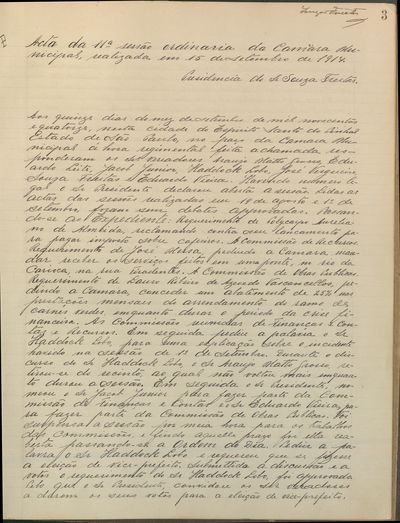 Souza Freitas
3
Acta da 11ª sessão ordinaria da Camara Mu-
nicipal, realizada em 15 de Setembro de 1914.
Presidencia do Sr. Souza Freitas.
Aos quinze dias do mez de Setembro de mil novecentos
e quatorze, nesta cidade de Espirito Santo do Pinhal
Estado de São Paulo, no paço da Camara Mu-
nicipal á hora regimental feita a chamada res-
ponderam os Srs. Vereadores Araujo Matto Grosso, Edu-
ardo Leite, Jacob Junior, Haddock Lobo, José Vergueiro
Souza Freitas e Eduardo Vieira. Havendo numero le-
gal o Sr. Presidente declarou aberta a sessão. Lidas as
actas das sessões realizadas em 18 de agosto e 1º de
Setembro, foram sem debates approvadas. Passan-
do-se ao Expediente: Requerimento de Polycarpo Aurelia-
no de Almeida, reclamando contra seu lançamento pa-
ra pagar imposto sobre cafeeiros. A Commissão de Recursos.
Requerimento de José pedindo a Camara man-
dar receber os serviços feitos em uma ponte, no rio do
na sua A Commissão de Obras Publicas.
Requerimento de Lauro Ribeiro de Azevedo Vasconcellos, pe-
dindo a Camara, conceder um abatimento de 25% nas
prestações mensaes do arrendamento do ramo de
carnes verdes, emquanto durar o periodo da crise fi-
nanceira. As Commissões reunidas de Finanças e Con-
tas e Recursos. Em seguida pediu a palavra o Sr.
Haddock Lobo, para uma explicação sobre o incidente
havido na sessão de 1º de Setembro. Durante o dis-
curso do Sr. Haddock Lobo, o Sr. Araujo Matto Grosso, re-
tirou-se do recinto, ao qual não voltou mais emquan-
to durou a sessão. Em seguida o Sr. Presidente, no-
meou o Sr. Jacob Junior para fazer parte da Com-
missão de Finanças e Contas e o Sr. Eduardo Vieira, pa-
ra fazer parte da Commissão de Obras Publicas. Foi
suspensa a sessão por meia hora para os trabalhos
das Commissões, e findo aquelle prazo foi ella rea-
berta passando-se a Ordem do Dia. Pediu a pa-
lavra o Sr. Haddock Lobo e requereu que se
a eleição de vice-prefeito. Submettido á discussão e a
votos o requerimento do Sr. Haddock Lobo, foi approvado
pelo que o Sr. Presidente, convidou os Srs. Vereadores
a darem os seus votos para a eleição de vice-prefeito.